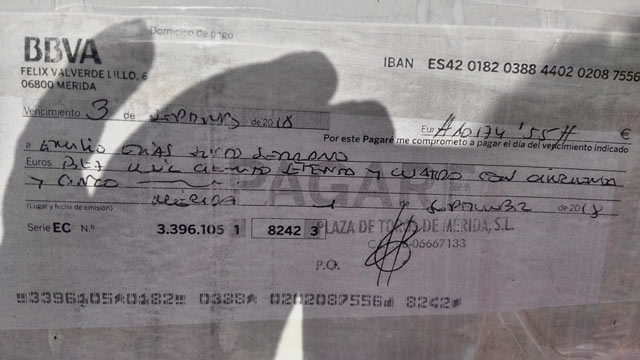 Domicilio de pago
BBVA
FELIX VALVERDE LILLO, 6
06800 MERIDA
IBAN ES42 0182 0388 4402 0208 7556
Vencimiento 3 de de 2018
Eur #10174'55# €
Por este Pagaré me comprometo a pagar el día del vencimiento indicado
a Emilio
Euros Diez mil ciento setenta y cuatro con cincuenta
y cinco
PAGARÉ
(Lugar y fecha de emisión) MERIDA de 2018
Serie EC N.º 3.396.105 1 8242 3
PLAZA DE TOROS DE MERIDA, S.L.
06667133
P.O.
3396105 0182 0388 0202087556 8242